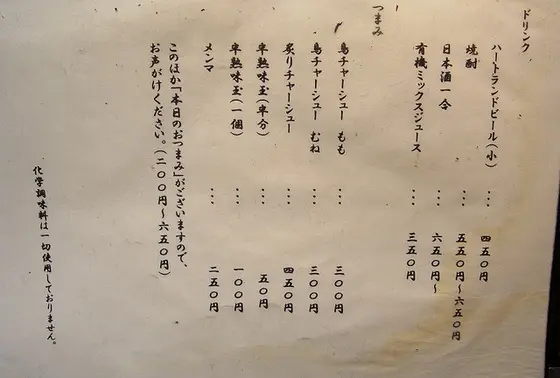 ドリンク
ハートランドビール(小) … 四五〇円
焼酎 … 五五〇円～六五〇円
日本酒一合 … 六五〇円～
有機ミックスジュース … 三五〇円
つまみ
鳥チャーシュー もも … 三〇〇円
鳥チャーシュー むね … 三〇〇円
炙りチャーシュー … 四五〇円
半熟味玉(半分) … 五〇円
半熟味玉(一個) … 一〇〇円
メンマ … 二五〇円
このほか「本日のおつまみ」がございますので、
お声がけください。(二〇〇円～六五〇円)
化学調味料は一切使用しておりません。